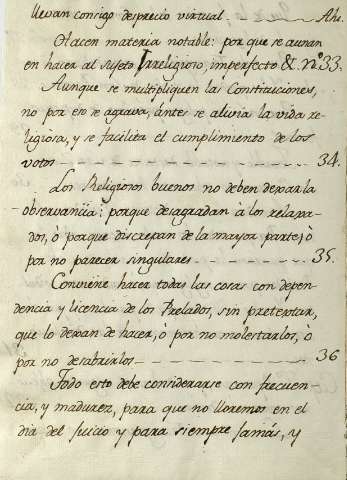 llevan consigo desprecio virtual. Ahi.
Hacen materia notable: por que se aunan
en hacer al sujeto Irreligioso, imperfecto &. nº 33.
Aunque se multipliquen las Constituciones,
no por eso se agrava, ántes se alivia la vida re-
ligiosa, y se facilita el cumplimiento de los
votos 34.
Los Religiosos buenos no deben dexar la
observancia: porque desagradan à los relaxa-
dos, ò porque discrepan de la mayor parte; ò
por no parecer singulares 35.
Conviene hacer todas las cosas con depen-
dencia y licencia de los Prelados, sin pretextar,
que lo dexan de hacer, ò por no molestarlos, ò
por no desabrirlos 36
Todo esto debe considerarse con frecuen-
cia, y madurez, para que no lloremos en el
dia del Juicio y para siempre Jamás, y